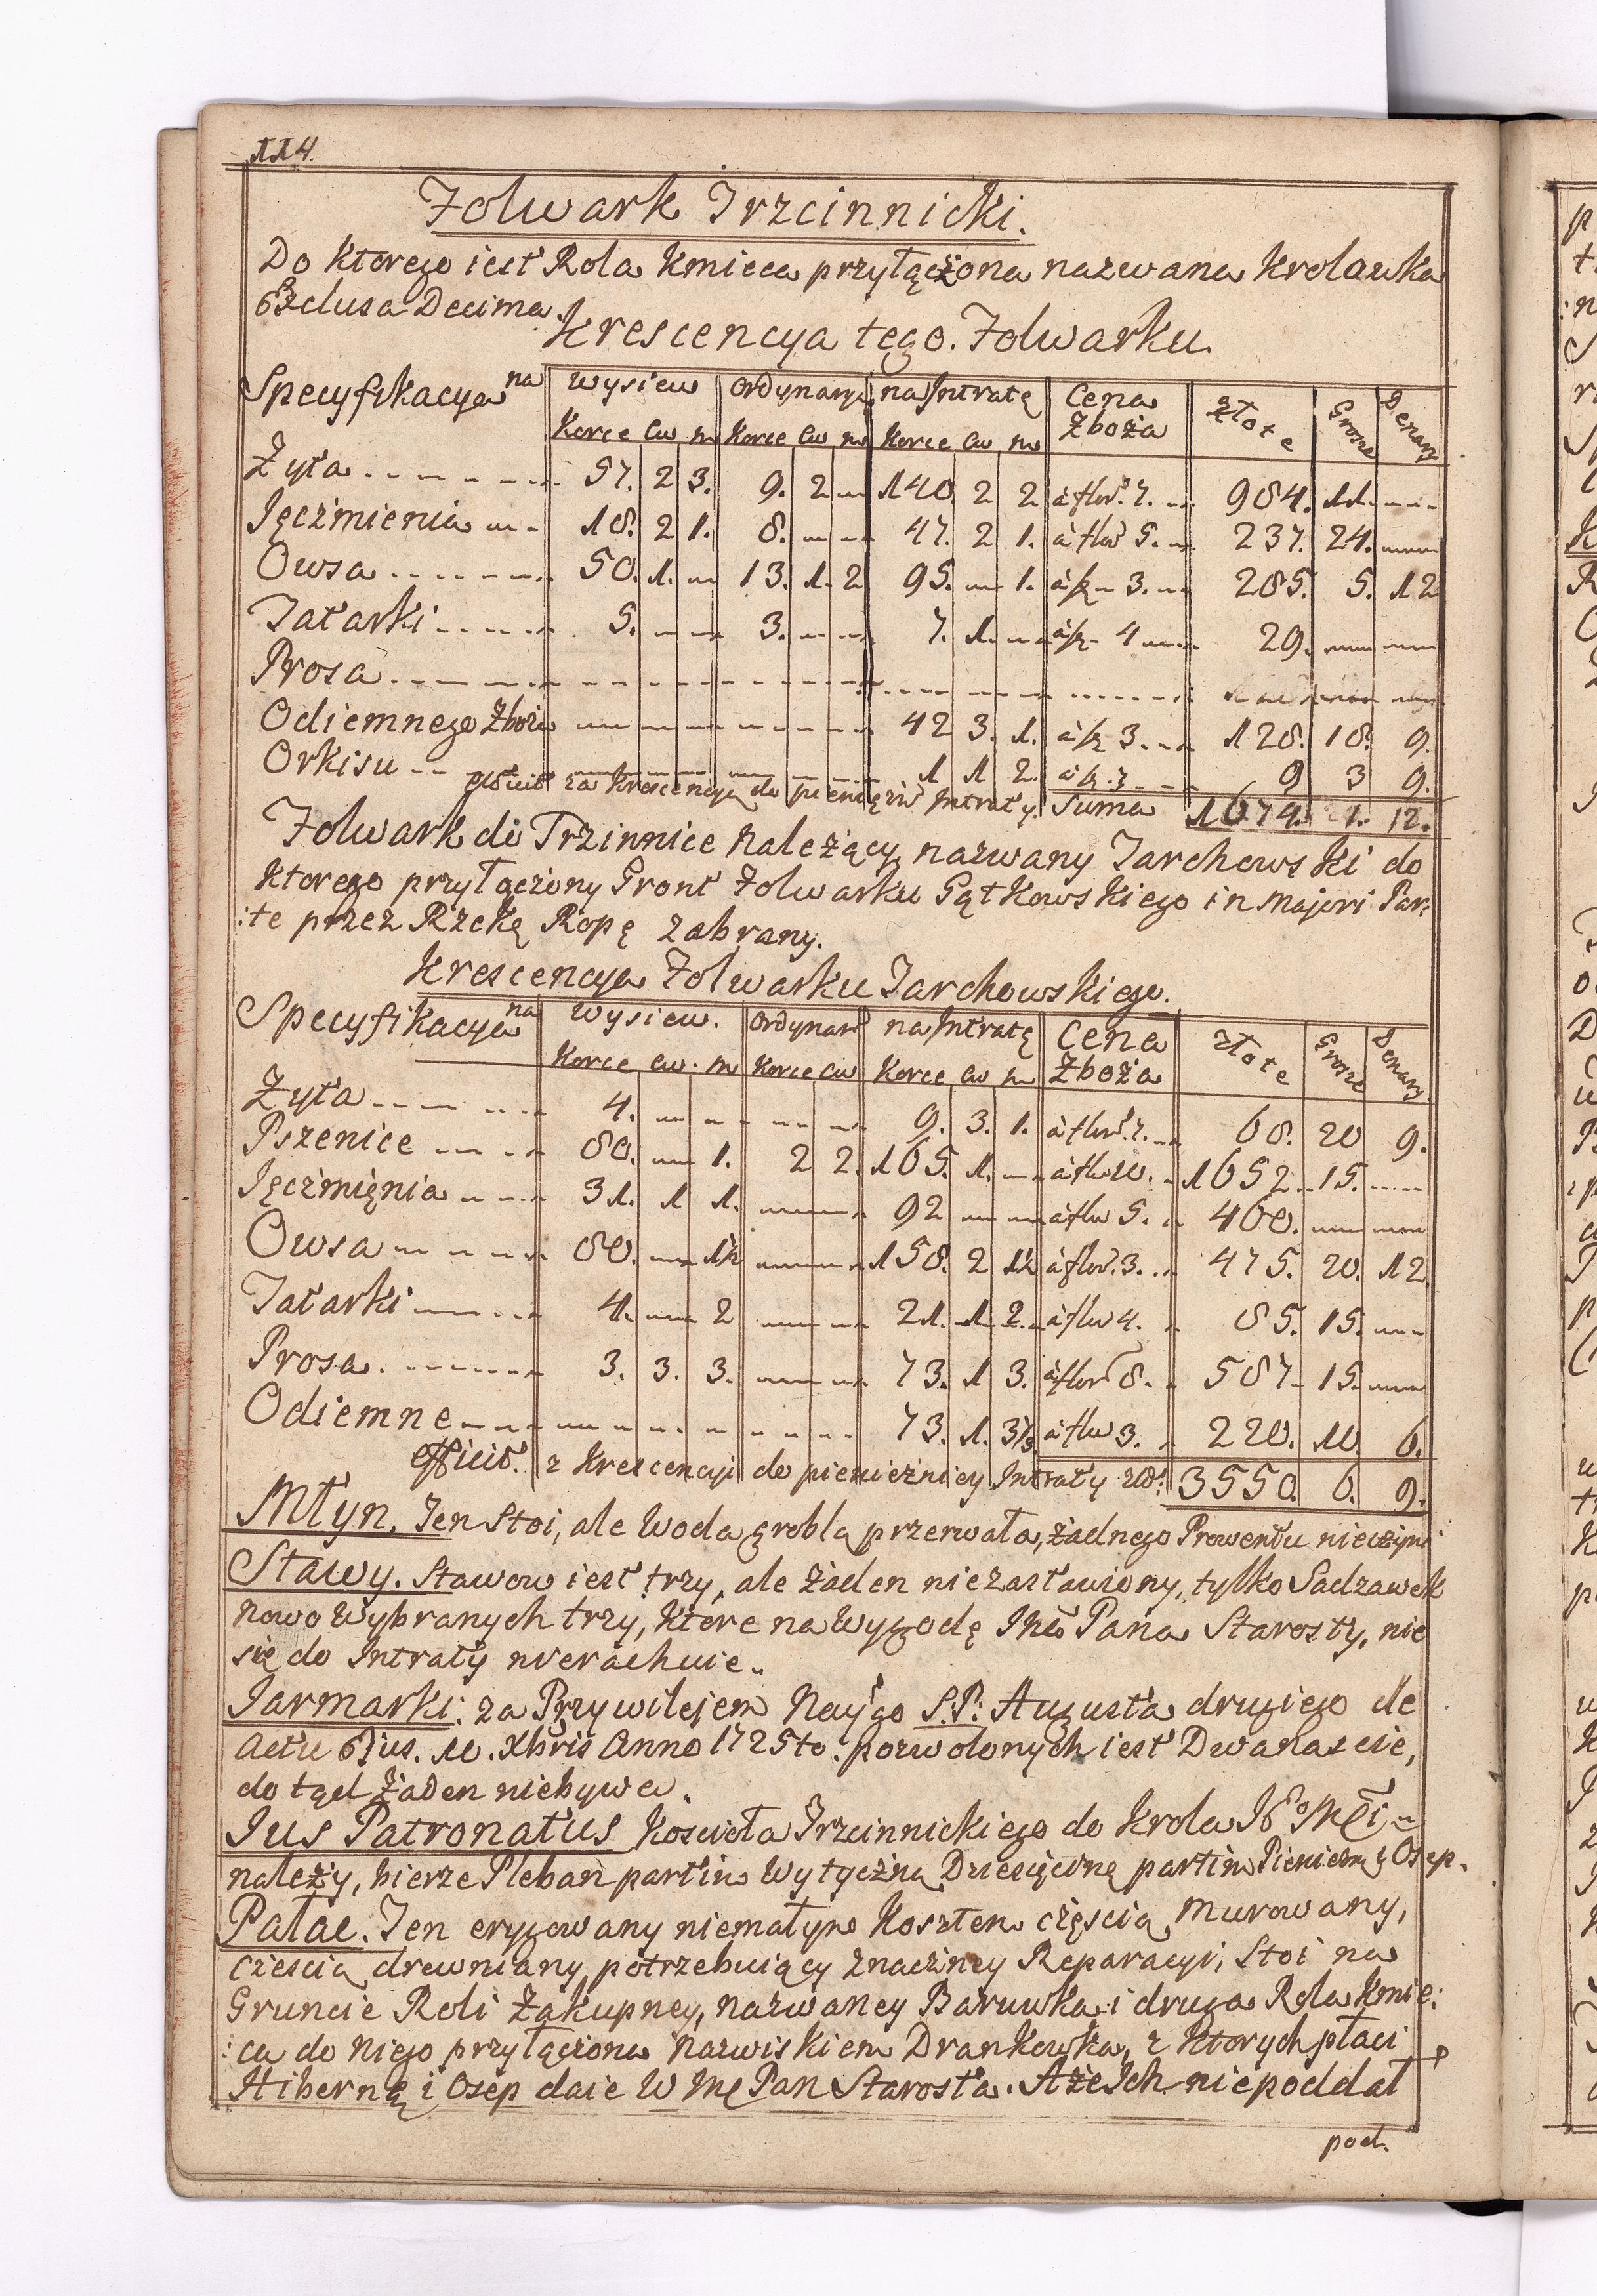 114.
Folwark Trzcinnicki.
Do ktorego iest Rola Kmieca przyłączona nazwana Krolawka
Exclusa Decima.
Krescencya tego Folwarku.
Specyfikacya na | Wysiew | Ordynaryą | na Intratę | Cena Zboża | Złote | Grosze | Denary
Korce Cw m | Korce Cw m | Korce Cw m
Zyta 57. 2 3. 9. 2 140 2 2 à flor. 7. 984. 11.
Jęczmienia 18. 2 1. 8. 47. 2 1. à flor 5. 237. 24.
Owsa 50. 1. 13. 1. 2 95. 1. à fl 3. 285. 5. 12
Tatarki 5. 3. 7. 1. à fl 4 29.
Prosa
Odiemnego Zboża 42 3. 1. à fl 3. 128. 18. 9.
Orkisu 1 1 2. à fl. 7 9 3 9.
efficit za Krescencyą do pieniężn Intraty Suma 1674. 2. 12.
Folwark do Trzinnice Należący nazwany Jarchowski do
ktorego przyłączony Gront Folwarku Gątkowskiego in Majori Par:
:te przez Rzekę Ropę zabrany.
Krescencya Folwarku Jarchowskiego.
Specyfikacya na | Wysiew. | Ordynar | na Intratę | Cena Zboża | Złote | Grosze | Denary
Korce Cw. m | Korce Cw | Korce Cw m
Zyta 4. 9. 3. 1. à flor. 7. 68. 20 9.
Pszenice 80. 1. 2 2. 165. 1. à flor 10. 1652. 15.
Jęczmięnia 31. 1 1. 92 à flor 5. 460.
Owsa 80. 1½ 158. 2 1½ à flor. 3. 475. 20. 12.
Tatarki 4. 2 21. 1 2. à flor 4. 85. 15.
Prosa 3. 3. 3. 73. 1 3. à flor 8. 587. 15.
Odiemne 73. 1. 3⅓ à flor 3. 220. 10. 6.
efficit. z Krescencyi do pienieżnicy Intraty zł: 3550. 6. 9.
Młyn. Ten Stoi, ale Woda groblą przerwała, żadnego Prowentu nieczyni
Stawy. Stawow iest trzy, ale żaden niezastawiony, tylko Sadzawek
nowo Wybranych trzy, Które na Wygodę Pana Starosty, nie
się do Intraty nierachuie.
Jarmarki: za Przywilejem Nayśgo S.P: Augusta drugiego de
Actu 6ius. 10. Xbris Anno 1725to. pozwolonych iest Dwanascie,
do tąd żaden niebywa.
Jus Patronatus Koscioła Trzcinnickiego do Krola JEo Mći
należy, bierze Pleban partim Wytyczną Dziesięcinę partim Pieniezną y Osep.
Pałac. Ten erygowany niemałym Kosztem częscią Murowany,
częscią drewniany, potrzebuiący znaczney Reparacyi, Stoi na
Gruncie Roli Zakupney, nazwaney Baruwka i druga Rola Kmie:
:ca do Niego przyłączona Nazwiskiem Drankowka, z Ktorych płaci
Hiberną i Osep daie W Mę Pan Starosta. Aże Ich niepoddał
pod.